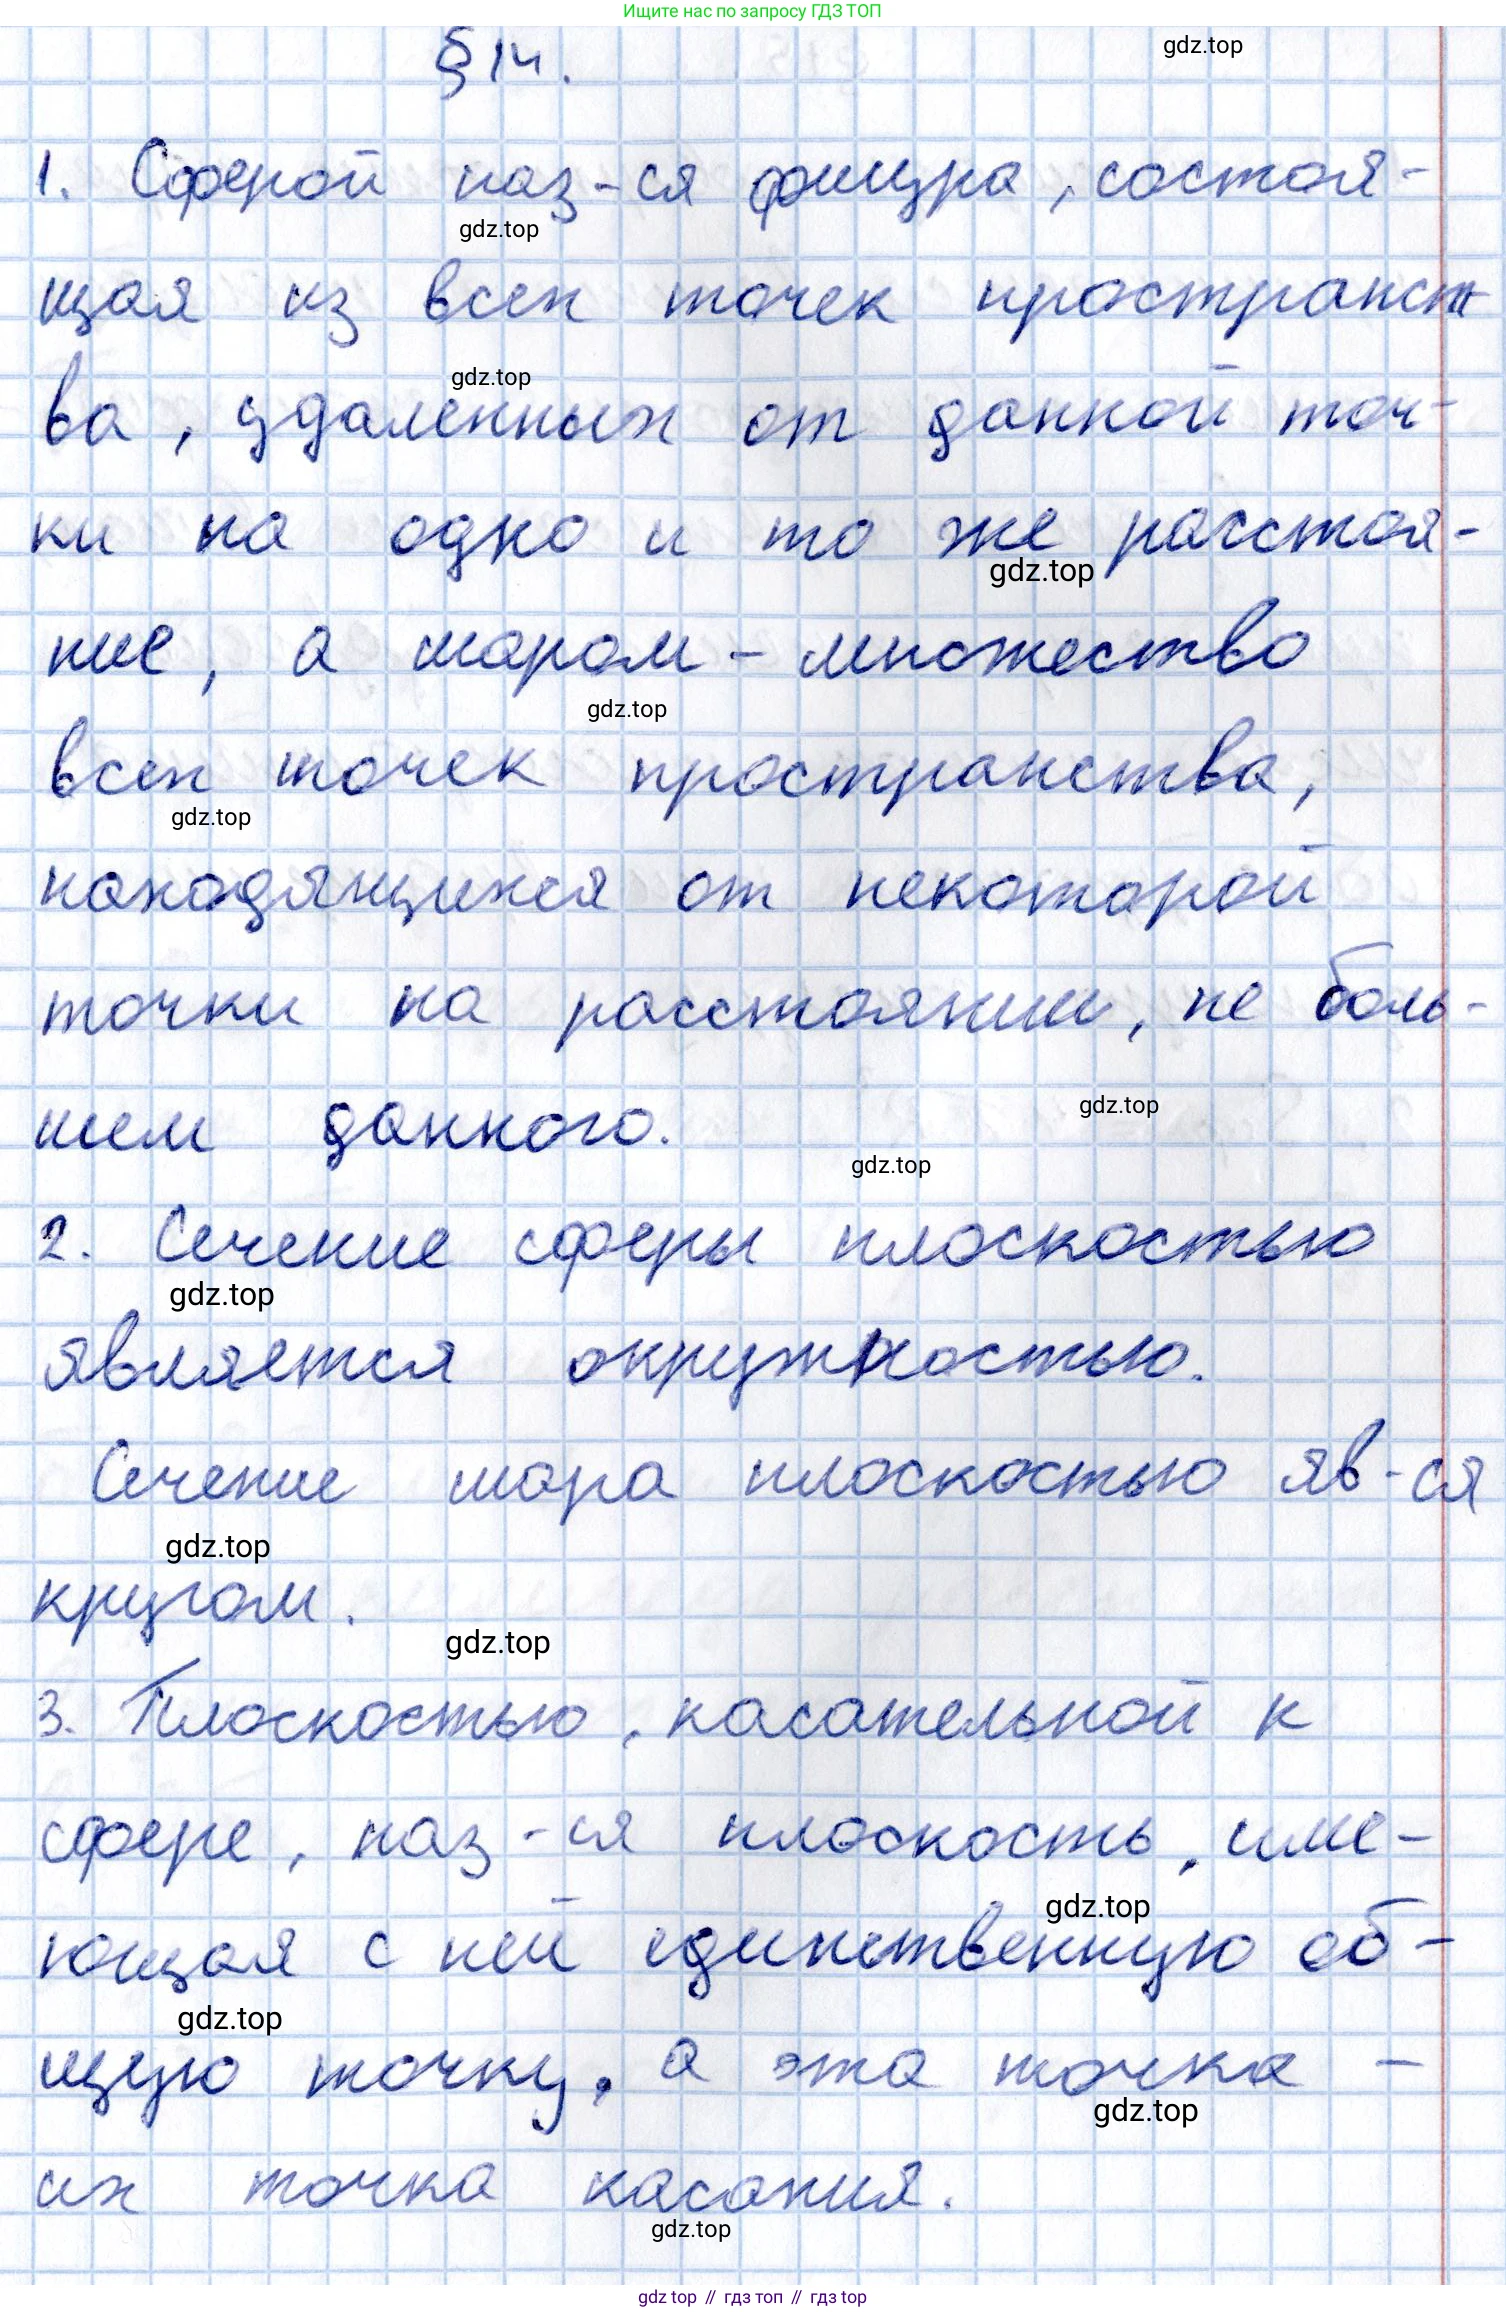 Ищите нас по запросу ГДЗ ТОП
§ 14.
gdz.top
1. Сферой наз-ся фигура, состоя-
gdz.top
щая из всех точек пространст
gdz.top
ва, удаленных от данной точ-
ки на одно и то же расстоя-
gdz.top
ние, а шаром - множество
gdz.top
всех точек пространства,
gdz.top
находящихся от некоторой
точки на расстоянии, не боль-
gdz.top
шем данного.
gdz.top
2. Сечение сферы плоскостью
gdz.top
является окружностью.
Сечение шара плоскостью яв-ся
gdz.top
кругом.
gdz.top
3. Плоскостью, касательной к
сфере, наз-ся плоскость, име-
gdz.top
ющая с ней единственную об-
gdz.top
щую точку, а эта точка -
gdz.top
их точка касания.
gdz.top
gdz top // гдз топ // gdz top